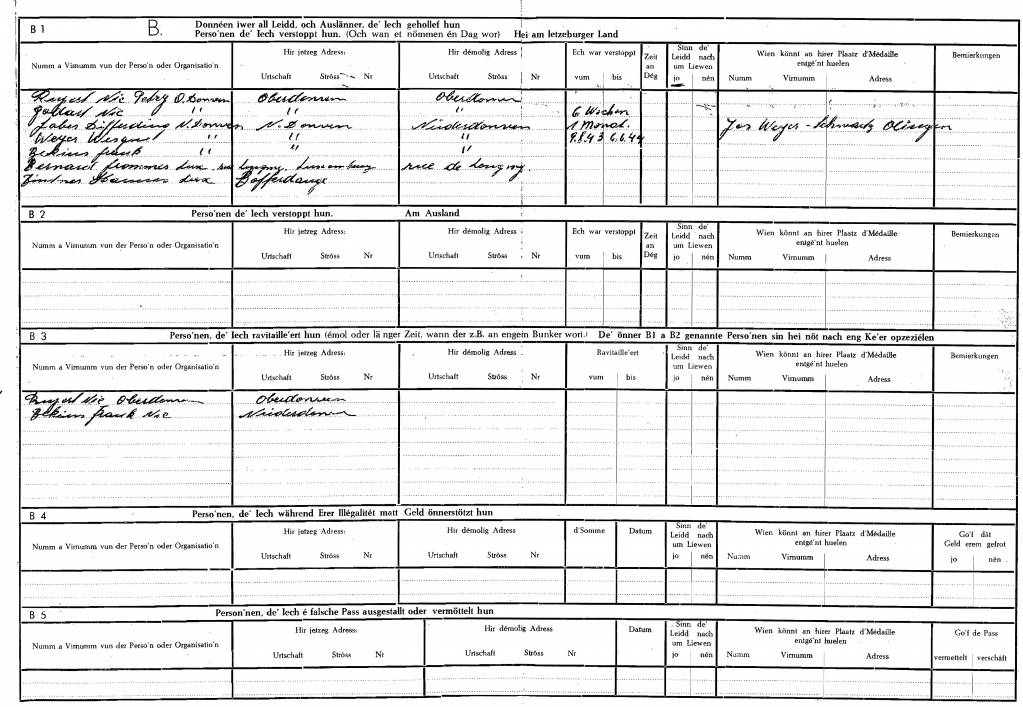 B 1 B. Donnéen iwer all Leidd, och Auslänner, de' Iech gehollef hun
Perso'nen de' Iech verstoppt hun. (Och wan et nömmen én Dag wor) Hei am letzeburger Land
Numm a Virnumm vun der Perso'n oder Organisatio'n
Hir jetzeg Adress:
Urtschaft Ströss Nr
Hir démolig Adress
Urtschaft Ströss Nr
Ech war verstoppt
vum bis
Zeit an Dég
Sinn de' Leidd nach um Liewen
jo nén
Wien könnt an hirer Plaatz d'Médaille entgé'nt huelen
Numm Virnumm Adress
Bemierkungen
Nic Petry O. Donven Oberdonven Oberdonven
Nic " " 6 Wochen
Faber Differding N. Donven N. Donven Niederdonven 1 Monat. Jos Weyer - Schwartz Olingen
Weyer " " 9.8.43 6.6.44
Frank " " "
Bernard Frommes Lux. Luxemburg rue de Longwy
Lux Bofferdange
B 2 Perso'nen de' Iech verstoppt hun. Am Ausland
Numm a Virnumm vun der Perso'n oder Organisatio'n
Hir jetzeg Adress:
Urtschaft Ströss Nr
Hir démolig Adress
Urtschaft Ströss Nr
Ech war verstoppt
vum bis
Zeit an Dég
Sinn de' Leidd nach um Liewen
jo nén
Wien könnt an hirer Plaatz d'Médaille entgé'nt huelen
Numm Virnumm Adress
Bemierkungen
B 3 Perso'nen, de' Iech ravitaille'ert hun (émol oder länger Zeit, wann der z.B. an engem Bunker wort.) De' önner B1 a B2 genannte Perso'nen sin hei nöt nach eng Ke'er opzeziélen
Numm a Virnumm vun der Perso'n oder Organisatio'n
Hir jetzeg Adress:
Urtschaft Ströss Nr
Hir démolig Adress
Urtschaft Ströss Nr
Ravitaille'ert
vum bis
Sinn de' Leidd nach um Liewen
jo nén
Wien könnt an hirer Plaatz d'Médaille entgé'nt huelen
Numm Virnumm Adress
Bemierkungen
Nic Oberdonven Oberdonven
Frank Nic Niederdonven
B 4 Perso'nen, de' Iech während Erer Illégalitét matt Geld önnerstötzt hun
Numm a Virnumm vun der Perso'n oder Organisatio'n
Hir jetzeg Adress:
Urtschaft Ströss Nr
Hir démolig Adress
Urtschaft Ströss Nr
d'Somme
Datum
Sinn de' Leidd nach um Liewen
jo nén
Wien könnt an hirer Plaatz d'Médaille entgé'nt huelen
Numm Virnumm Adress
Go'f dât Geld erem gefrot
jo nén
B 5 Person'nen, de' Iech é falsche Pass ausgestallt oder vermöttelt hun
Numm a Virnumm vun der Perso'n oder Organisatio'n
Hir jetzeg Adress:
Urtschaft Ströss Nr
Hir démolig Adress
Urtschaft Ströss Nr
Datum
Sinn de' Leidd nach um Liewen
jo nén
Wien könnt an hirer Plaatz d'Médaille entgé'nt huelen
Numm Virnumm Adress
Go'f de Pass
vermettelt verschâft